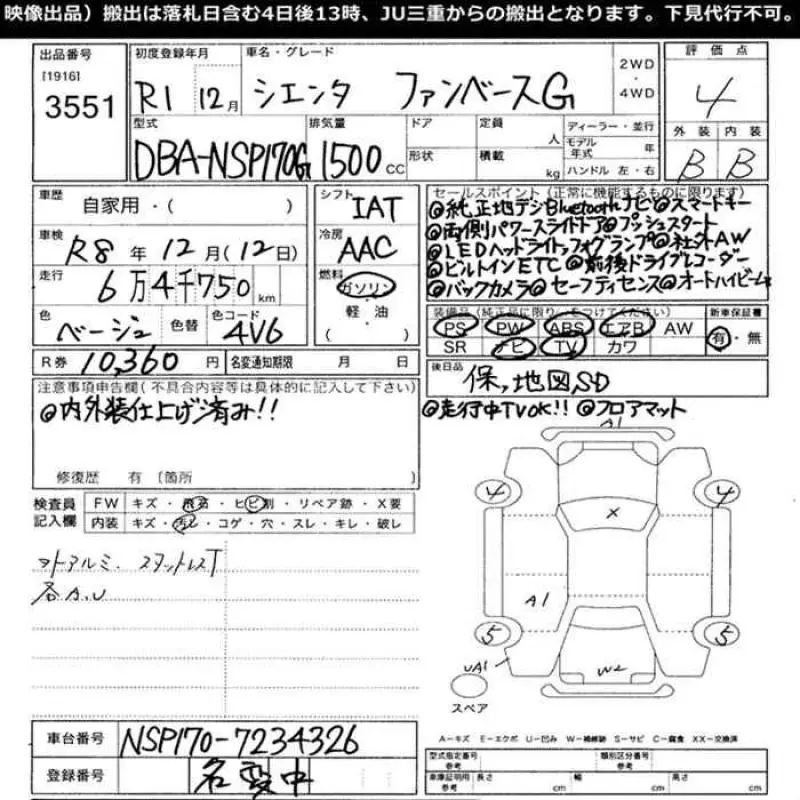 映像出品）搬出は落札日含む4日後13時、JU三重からの搬出となります。下見代行不可。
出品番号 [1916] 3551
初度登録年月 R1 12月
車名・グレード シエンタ ファンベースG
2WD・4WD
評価点 4
外装 B 内装 B
型式 DBA-NSP170G
排気量 1500 CC
ドア 形状
定員 人
積載 kg
ディーラー・並行
モデル年式 年
ハンドル 左・右
車歴 自家用・( )
車検 R8年12月(12日)
走行 6万4千750 km
色 ベージュ 色替 色コード 4V6
シフト IAT
冷房 AAC
燃料 ガソリン 軽・油 ( )
セールスポイント（正常に機能するものに限ります）
◎純正地デジBluetoothナビ◎スマートキー
◎両側パワースライドドア◎プッシュスタート
◎LEDヘッドライト、フォグランプ◎社外AW
◎ビルトインETC◎前後ドライブレコーダー
◎バックカメラ◎セーフティセンス◎オートハイビーム
装備品（純正品に限り○をつけてください）
PS PW ABS エアB AW
SR ナビ TV カワ
新車保証書 有・無
R券 10,360円
名変通知期限 月 日
後日品 保、地図SD
注意事項申告欄(不具合内容等は具体的に記入して下さい)
◎内外装仕上げ済み!!
◎走行中TVOK!! ◎フロアマット
修復歴 有 〔箇所 〕
検査員記入欄
FW キズ・飛石・ヒビ割・リペア跡・X要
内装 キズ・汚れ・コゲ・穴・スレ・キレ・破レ
ソトアルミ. スタットレスT
各A.U
A1
4 4
X
A1
5 5
UA1 W2
スペア
A－キズ E－エクボ U－凹み W－補修跡 S－サビ C－腐食 XX－交換済
車台番号 NSP170-7234326
登録番号 名変中
型式指定番号 参考
類別区分番号 参考
車庫証明用 参考 長さ cm 幅 cm 高さ cm